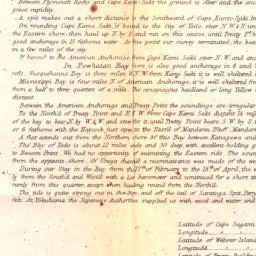 Between Plymouth Rocks and Cape Kami-Saki the ground is clear and the
great regularity.
A spit makes out a short distance to the Southward of Cape Kami-Saki. In
On rounding Cape Kami-Saki, W bound to the City of Yedo, steer N.W.
the Eastern shore, then haul up N. by E and run on this course, until Treaty P
good anchorage in 11 fathoms water. At this point our survey terminated, the boat
in a few miles of the city.
W bound to the American Anchorage, from Cape Kami Saki steer N.W. and
In Powhatan Bay there is also good anchorage in 6 and
reefs. Susquehanna Bay is three miles, N.W. from Kami Saki it is well sheltered,
Mississippi Bay is four miles N. of American Anchorage, it is well sheltered
from a half to three quarters of a mile. The conspicuous headland or long Yellow
distant.
Between the American Anchorage and Treaty Point the soundings are irregular
To the North'd of Treaty Point and N.N.W. from Cape Kami Saki
of the bay to bear N. by W.¼W. and steer for it, until Treaty Point bears S.W. by S
or 6 fathoms with the Hayock just open to the East'd of Mandarin Bluff. Mandarin
A flat extends out from the Northern shore of this Bay between Kanagawa and
The Bay of Yedo is about 12 miles wide and 30 deep, with excellent holding
to Beacon Point. We had no opportunity of examining the Eastern side. The
from the opposite shore. Of Uraga channel a reconnaissance was made of the
During our Stay in the Bay from the 11th of February to the 18th of April, the
ly from the South'd and West'd with a low barometer and continued for a short
rarely from this quarter, except when hauling round from the North'd.
The tide is quite strong out in the Bay, and off the tail of Saratoga Spit, Perry
vels. At Yokuhama the Japanese authorities supplied us with wood and water, and
Latitude of Cape Sagami
Longitude
Latitude of Webster Island
Longitude